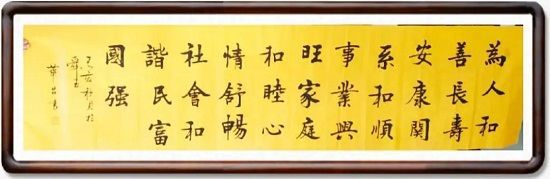 為人和
善長壽
安康關
系和順
事業興
旺家庭
和睦心
情舒暢
社會和
諧民富
國强
己亥